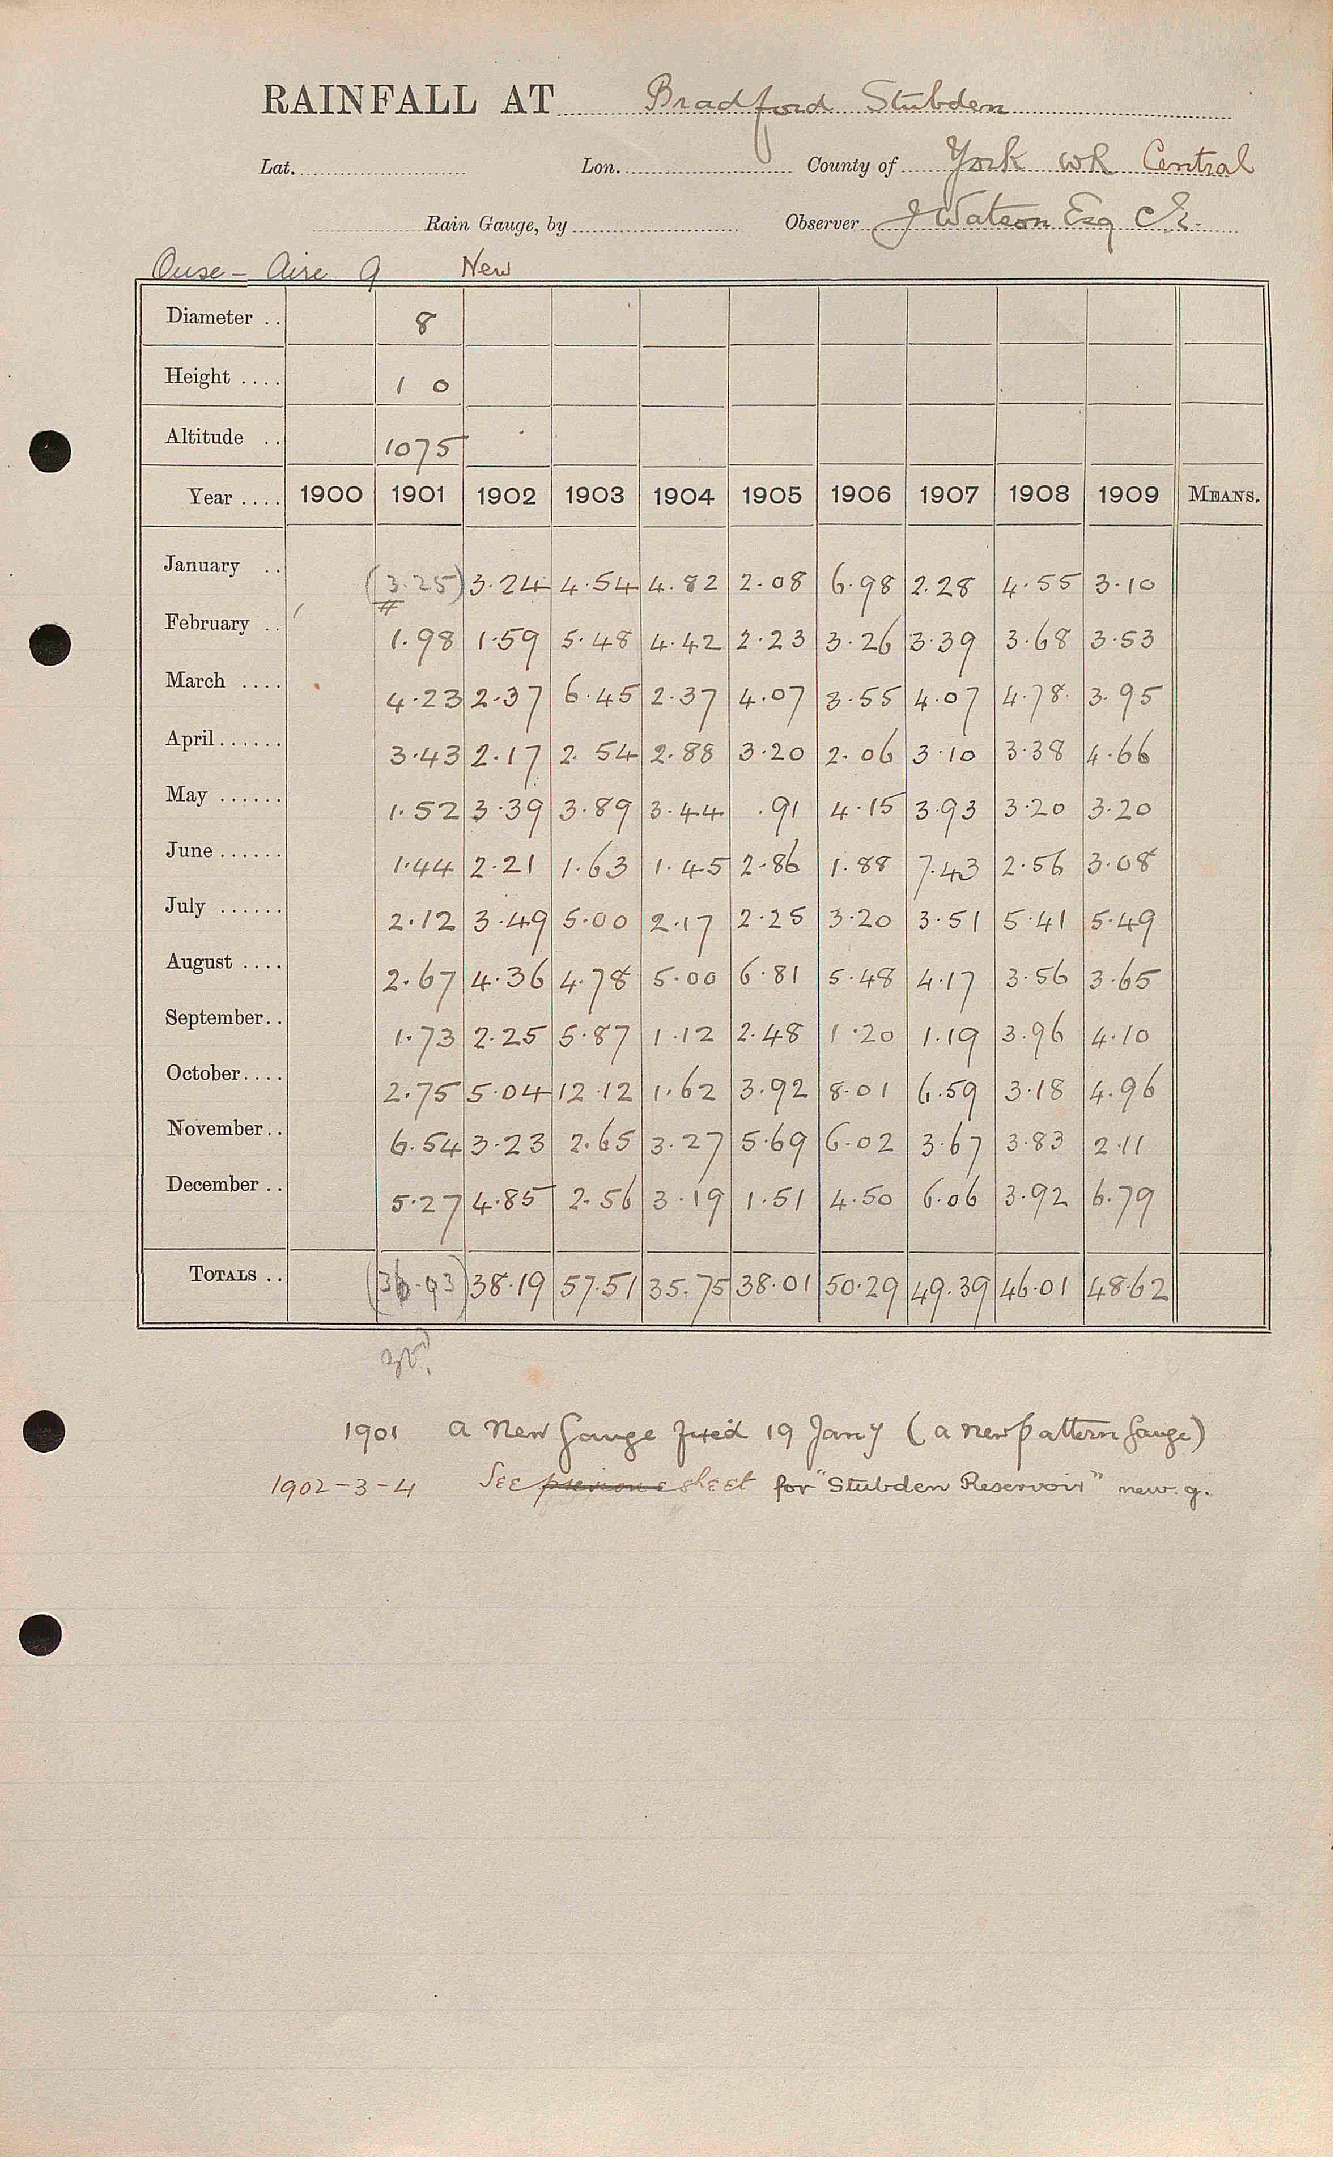 RAINFALL AT Bradford Stubden
Lat. Lon. County of York WR Central
Rain Gauge, by Observer J Watson Esq C.E.
Ouse - Aire 9 New
Diameter .. 8
Height .... 1 0
Altitude .. 1075
Year .... 1900 1901 1902 1903 1904 1905 1906 1907 1908 1909 MEANS.
January .. (3.25) 3.24 4.54 4.82 2.08 6.98 2.28 4.55 3.10
February .. 1.98 1.59 5.48 4.42 2.23 3.26 3.39 3.68 3.53
March .... 4.23 2.37 6.45 2.37 4.07 3.55 4.07 4.78 3.95
April...... 3.43 2.17 2.54 2.88 3.20 2.06 3.10 3.38 4.66
May ...... 1.52 3.39 3.89 3.44 .91 4.15 3.93 3.20 3.20
June...... 1.44 2.21 1.63 1.45 2.86 1.88 7.43 2.56 3.08
July ...... 2.12 3.49 5.00 2.17 2.25 3.20 3.51 5.41 5.49
August .... 2.67 4.36 4.78 5.00 6.81 5.48 4.17 3.56 3.65
September.. 1.73 2.25 5.87 1.12 2.48 1.20 1.19 3.96 4.10
October.... 2.75 5.04 12.12 1.62 3.92 8.01 6.59 3.18 4.96
November.. 6.54 3.23 2.65 3.27 5.69 6.02 3.67 3.83 2.11
December .. 5.27 4.85 2.56 3.19 1.51 4.50 6.06 3.92 6.79
TOTALS .. (36.93) 38.19 57.51 35.75 38.01 50.29 49.39 46.01 48.62
1901 a new gauge fixed 19 Jany (a new pattern gauge)
1902-3-4 See previous sheet for "Stubden Reservoir" new g.